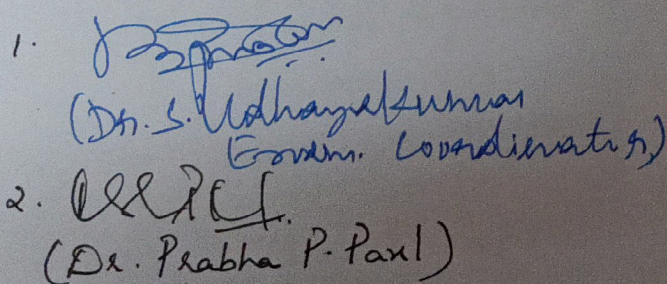 1.
(Dr. S. Udhayakumar
Exam. Coordinator)
2.
(Dr. Prabha P. Paul)